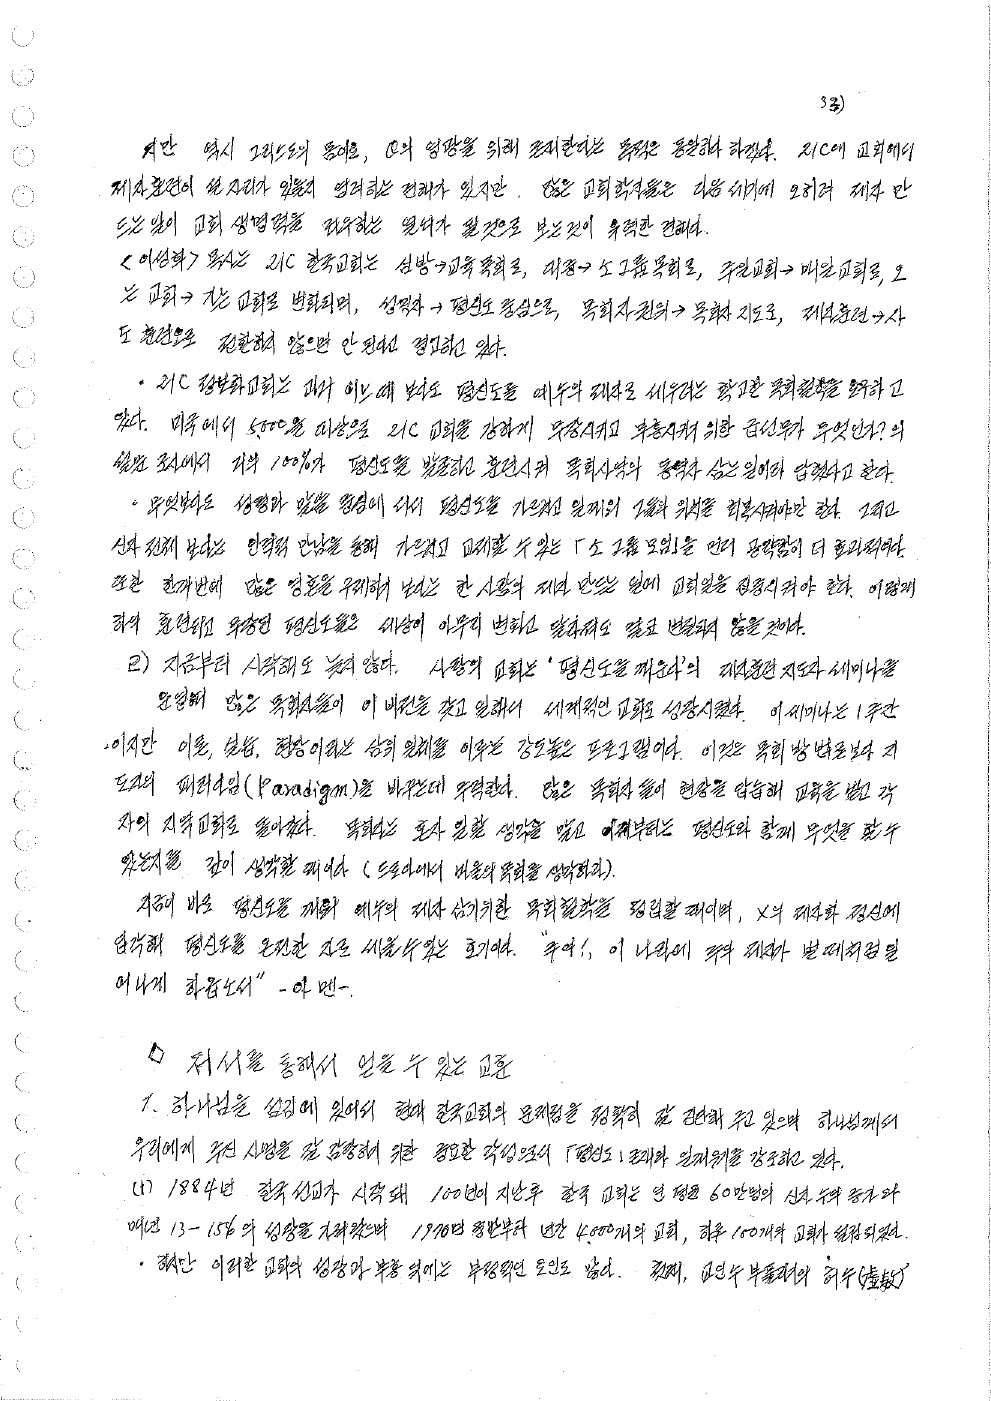 지만 역시 그리스도의 몸이요, 의 영광을 위해 존재한다는 목적은 동일하다 하겠다. 21C에 교회에서
제자훈련이 설 자리가 있을지 염려하는 견해가 있지만. 많은 교회학자들은 다음 세기에 오히려 제자 만
드는 일이 교회 생명력을 좌우하는 열쇠가 될 것으로 보는 것이 유력한 견해다.
<이성희> 목사는 21C 한국교회는 심방→교육목회로, 대중→소그룹목회로, 주일교회→매일교회로, 오
는 교회→가는 교회로 변화되며, 성직자→평신도 중심으로, 목회자 권위→목회자 지도로, 제자훈련→사
도훈련으로 전환하지 않으면 안 된다고 경고하고 있다.
· 21C 정보화교회는 과거 어느 때 보다도 평신도를 예수의 제자로 세우려는 확고한 목회철학을 요구하고
있다. 미국에서 5,000을 대상으로 21C 교회를 강하게 무장시키고 부흥시키기 위한 급선무가 무엇인가?의
설문조사에서 거의 100%가 평신도를 발굴하고 훈련시켜 목회사역의 동역자 삼는 일이라 답했다고 한다.
· 무엇보다도 성령과 말씀 중심에 서서 평신도를 가르치고 일깨워 그들의 위치를 회복시켜야만 한다. 그리고
신자 전체 보다는 인격적 만남을 통해 가르치고 교제할 수 있는 「소그룹모임」을 먼저 공략함이 더 효과적이다.
또한 한꺼번에 많은 영혼을 구제하기 보다는 한 사람의 제자 만드는 일에 교회일을 집중시켜야 한다. 이렇게
하여 훈련되고 무장된 평신도들은 세상이 아무리 변화고 달라져도 결코 변절되지 않을 것이다.
2) 지금부터 시작해도 늦지 않다. 사랑의 교회는 '평신도를 깨운다'의 제자훈련 지도자 세미나를
운영해 많은 목회자들이 이 비전을 갖고 일해서 세계적인 교회로 성장시켰다. 이 세미나는 1주간
이지만 이론, 실습, 현장이라는 삼위일체를 이루는 강도높은 프로그램이다. 이것은 목회 방법론보다 지
도자의 패러다임(Paradigm)을 바꾸는데 주력한다. 많은 목회자들이 현장을 답습해 교육을 받고 각
자의 지역교회로 돌아갔다. 목회자는 혼자 일할 생각을 말고 이제부터는 평신도와 함께 무엇을 할 수
있는지를 깊이 생각할 때이다 (드로아에서 바울의 목회를 생각하라).
지금이 바로 평신도를 깨워 예수의 제자 삼기위한 목회철학을 정립할 때이며, X의 제자화 정신에
입각해 평신도를 온전한 자로 세울 수 있는 호기이다. "주여!, 이 나라에 주의 제자가 벌떼처럼 일
어나게 하옵소서" -아멘-.
◇ 저서를 통해서 얻을 수 있는 교훈
1. 하나님을 섬김에 있어서 현대 한국교회의 문제점을 정확히 잘 진단해 주고 있으며 하나님께서
우리에게 주신 사명을 잘 감당하기 위한 중요한 각성으로서 「평신도」존재와 일깨워를 강조하고 있다.
(1) 1884년 한국선교가 시작돼 100년이 지난 후 한국 교회는 연 평균 60만명의 신자 수의 증가와
매년 13-15%의 성장을 자랑했으며 1970년 중반부터 년간 4,000개의 교회, 하루 100개의 교회가 설립되었다.
· 하지만 이러한 교회의 성장과 부흥 뒤에는 부정적인 요인도 많다. 첫째, 교인수 부풀리기의 허수(虛數)